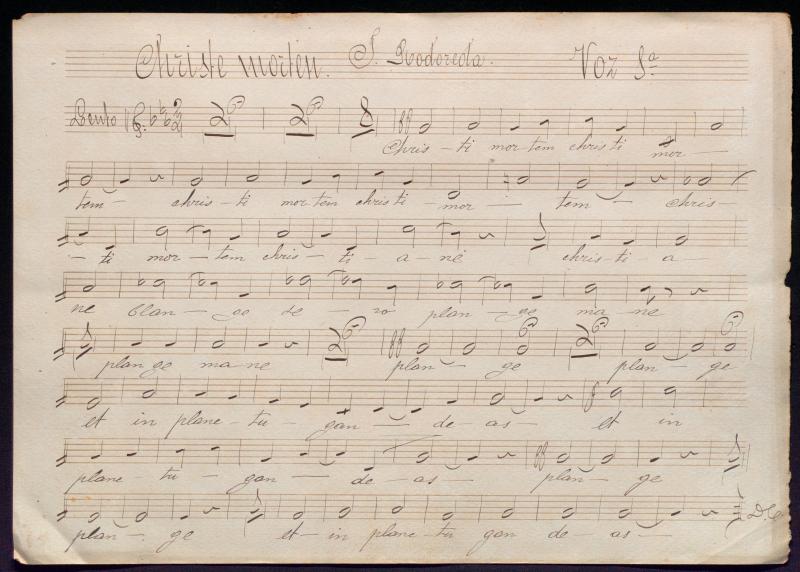 Christe mortem. J. Rodoreda. Voz 1ª
Lento 2 2 8
Chris - ti mor tem chris ti mor -
tem - chris - ti mor tem chris ti - mor - tem - chris -
- ti mor - tem chris - ti - a - ne chris - ti - a -
ne plan - ge ma - ne
plan ge ma ne 2 plan - ge 2 plan - ge
et in planc - tu - gan - de - as - et in
planc - tu - gan - de - as - plan - ge
plan - ge et - in planc - tu gan de - as - D.C.